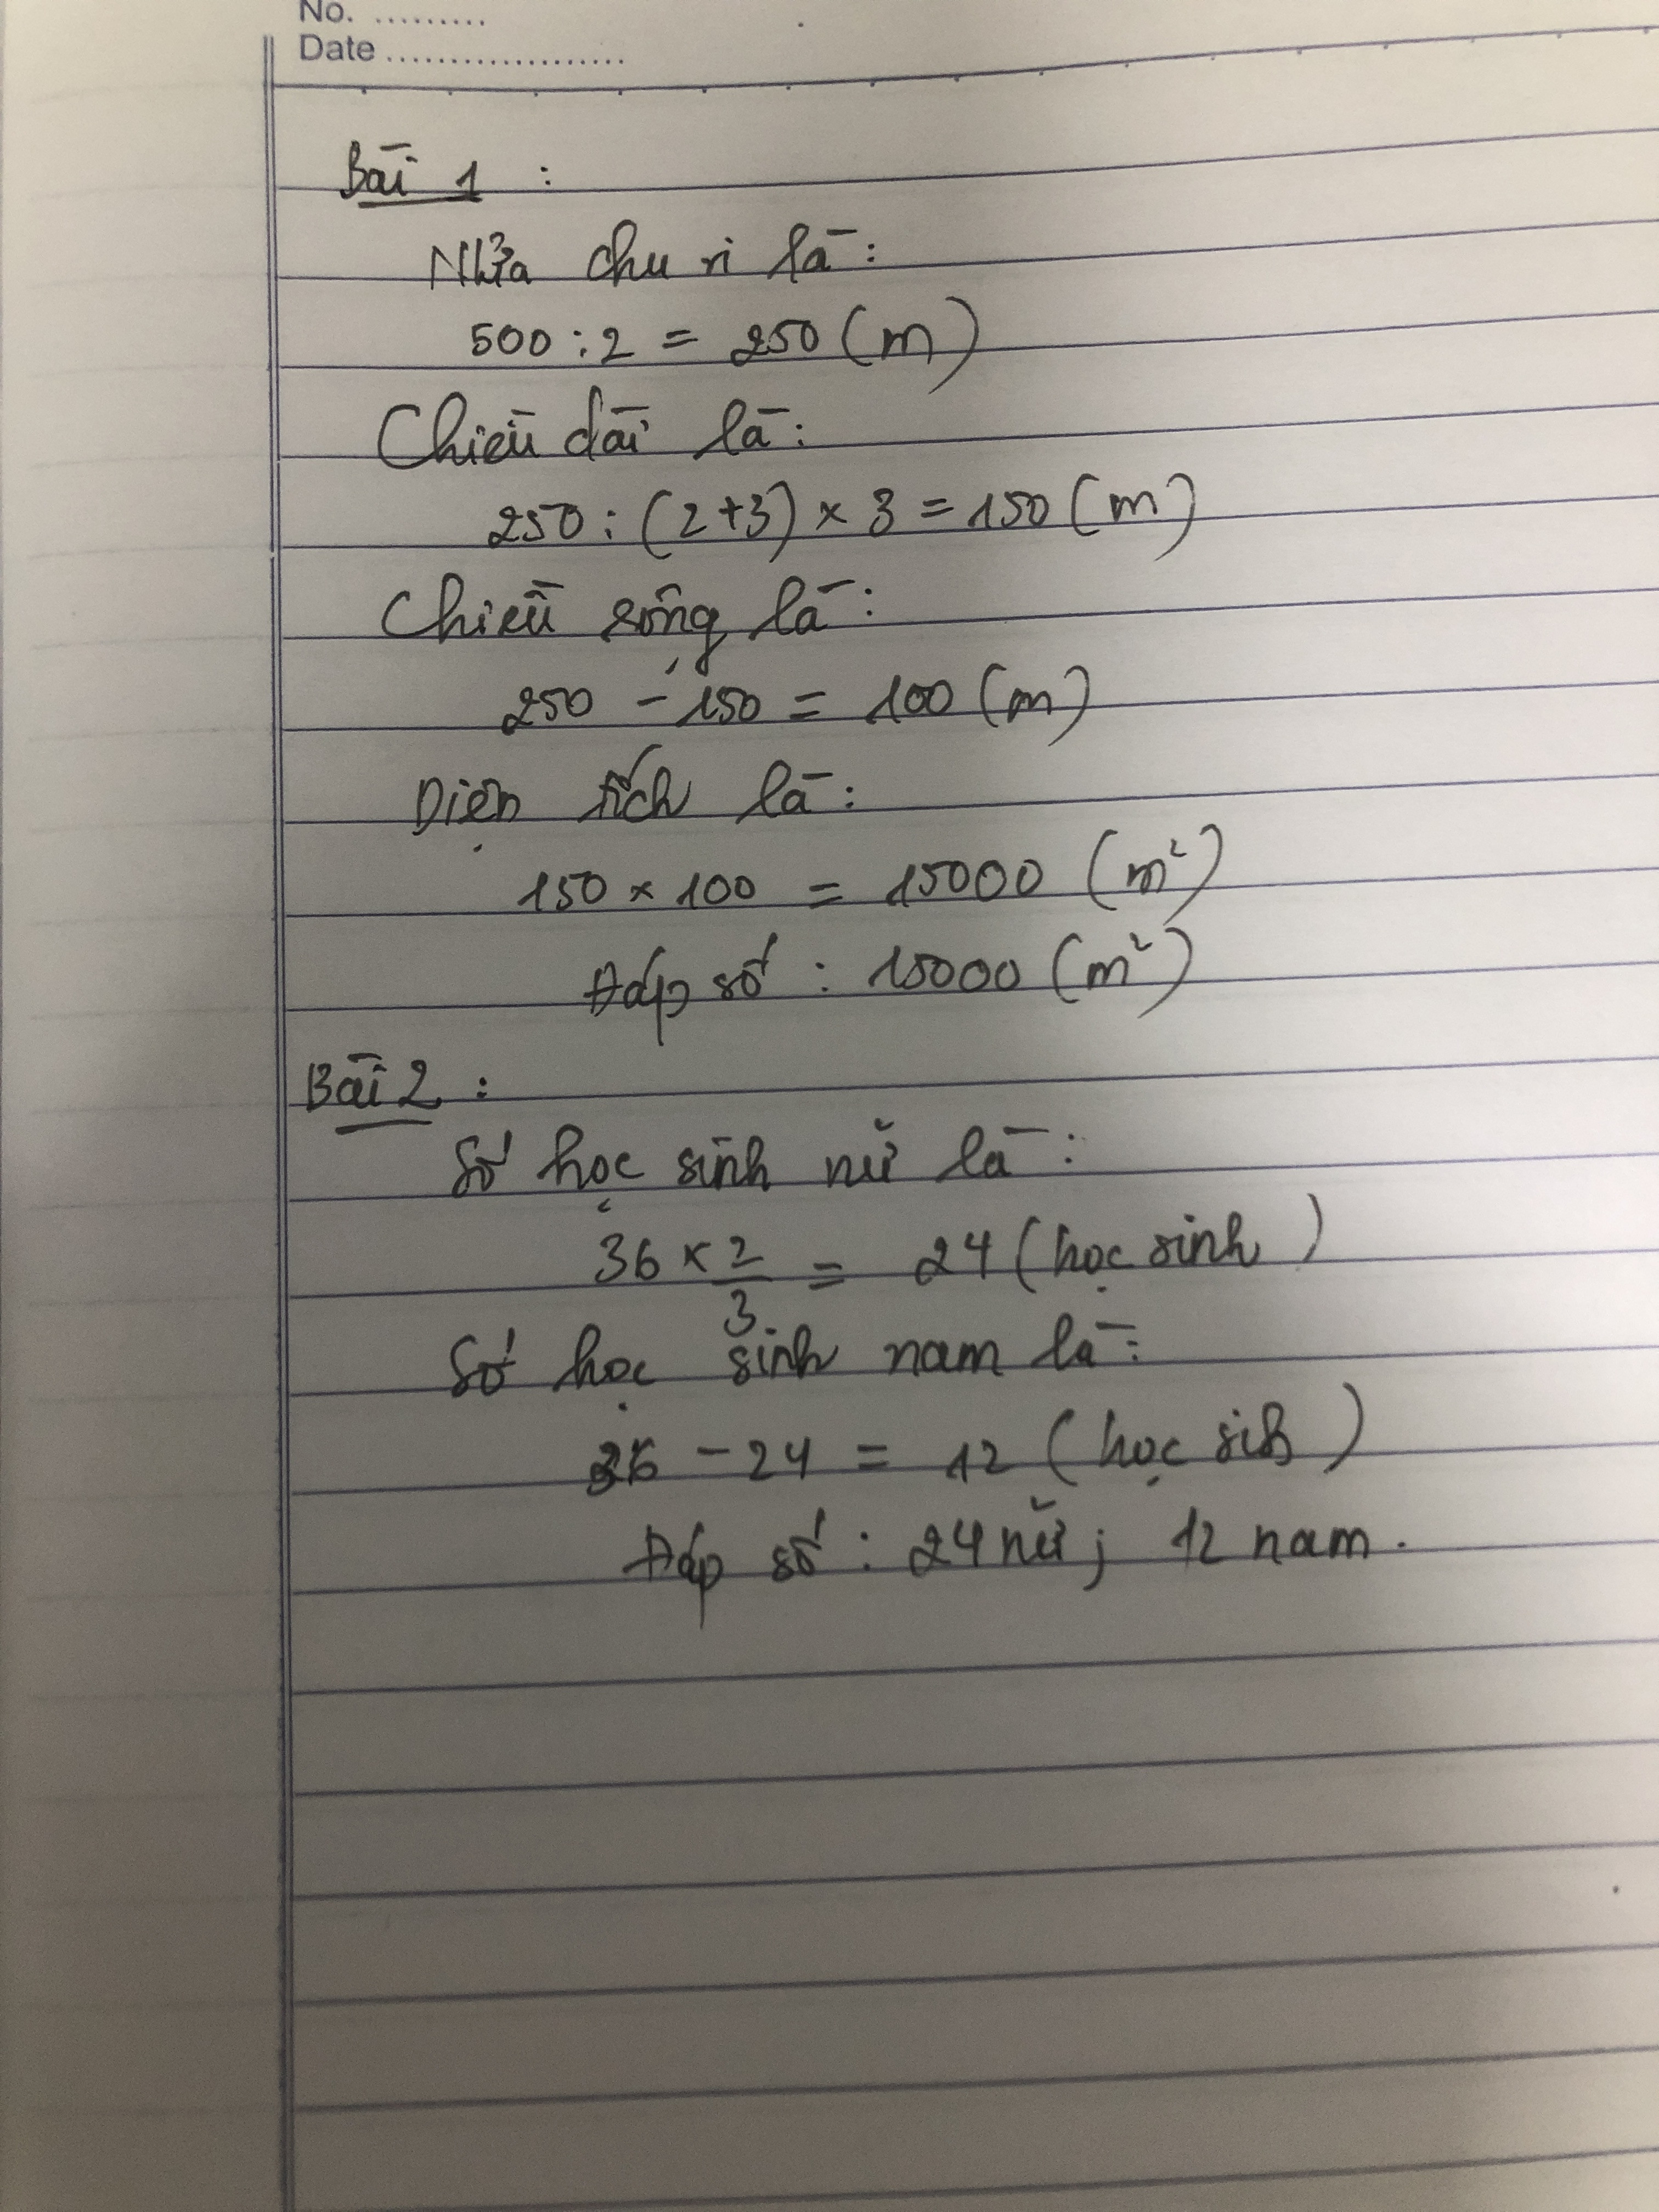 No. .........
Date ...................
Bài 1 :
Nửa chu vi là:
500 : 2 = 250 (m)
Chiều dài là:
250 : (2+3) × 3 = 150 (m)
Chiều rộng là:
250 - 150 = 100 (m)
Diện tích là:
150 × 100 = 15000 (m²)
Đáp số : 15000 (m²)
Bài 2 :
Số học sinh nữ là:
36 × 2/3 = 24 (học sinh)
Số học sinh nam là:
36 - 24 = 12 (học sih)
Đáp số : 24 nữ ; 12 nam.